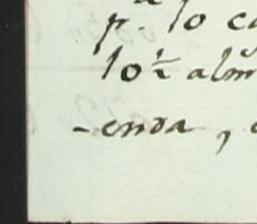 p. 10 ca
10½ alm
-enda,